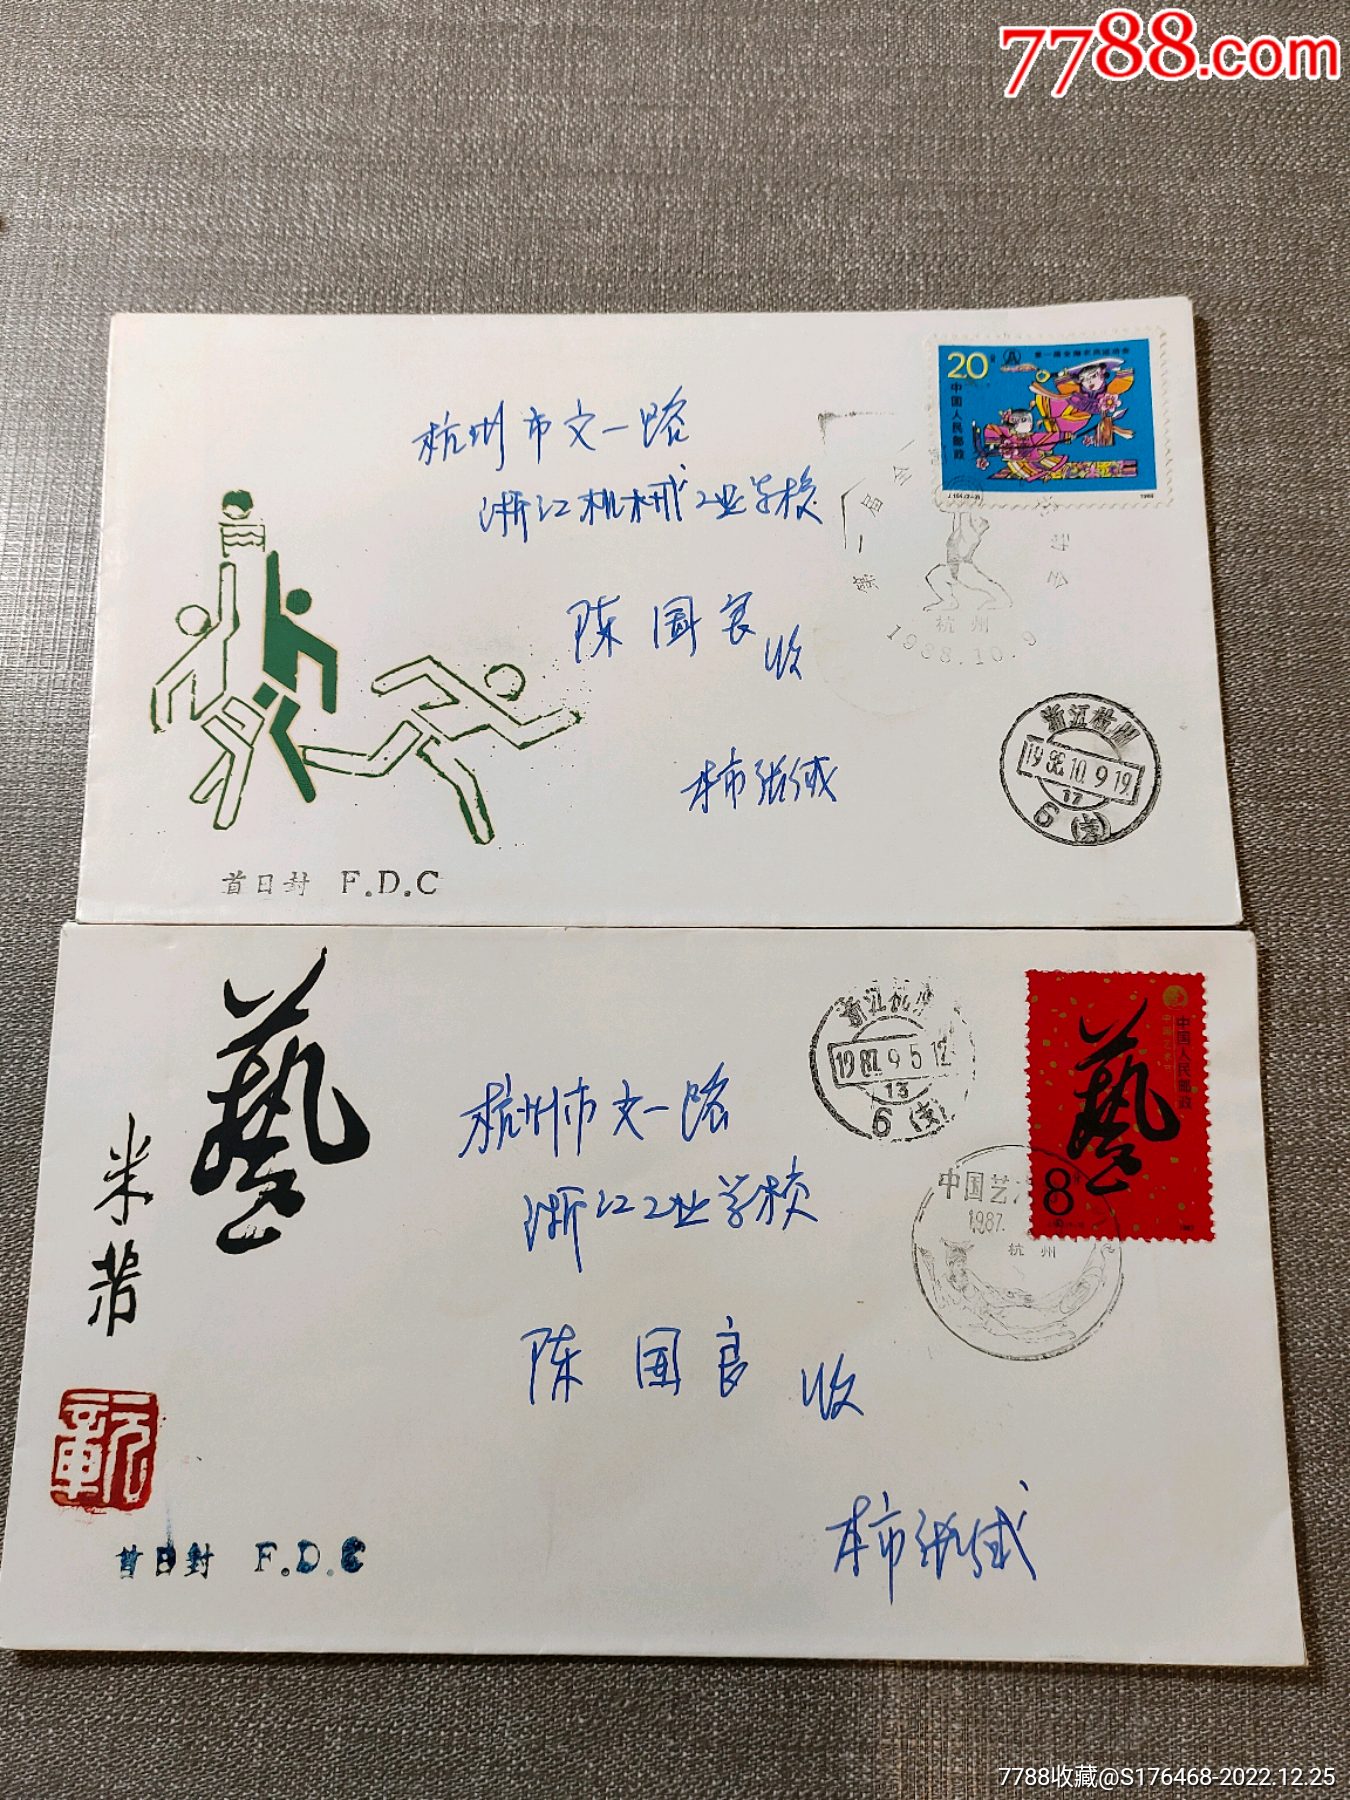 7788.com
20分
第一届全国农民运动会
中国人民邮政
1988
杭州市文一路
浙江机械工业学校
陈国良 收
第一届全
杭州
1988.10.9
浙江杭州
1988.10.9.19
17
6(支)
首日封 F.D.C
藝
米芾
浙江杭州
1987.9.5.12
13
6(支)
中国人民邮政
中国艺术节
藝
8分
1987
中国艺术
1987.
杭州
杭州市文一路
浙江工业学校
陈国良 收
首日封 F.D.C
7788收藏@S176468-2022.12.25